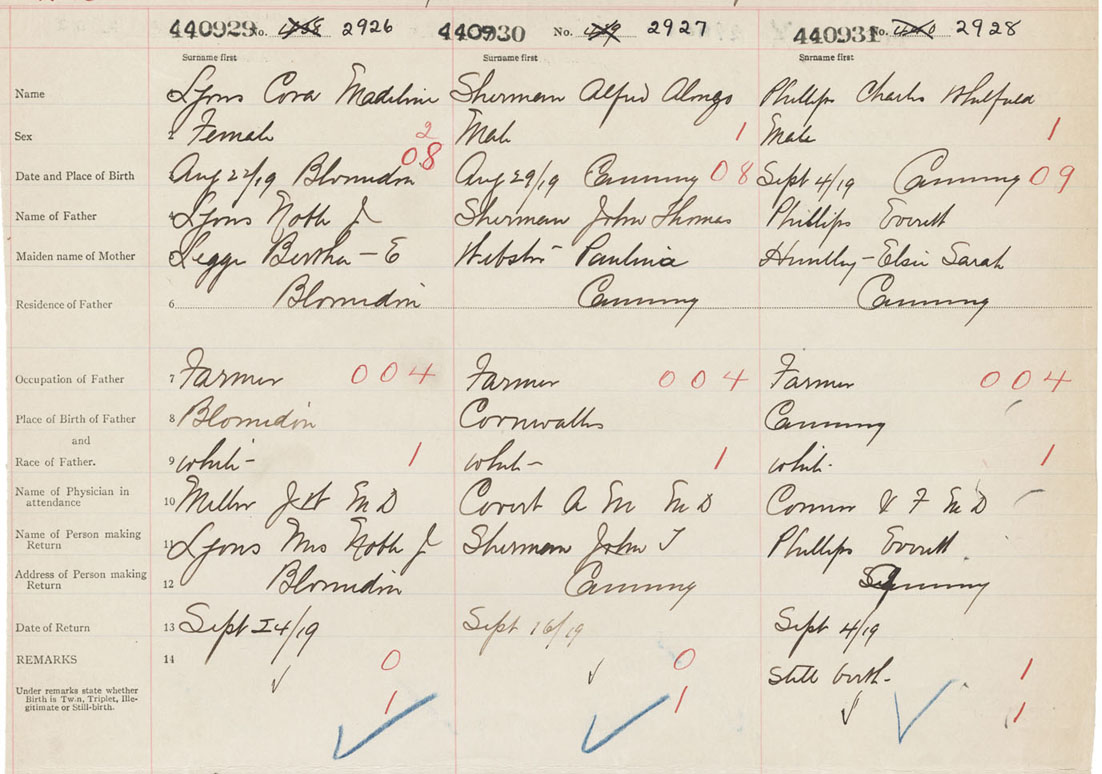 440929 No. 2926 440930 No. 2927 440931 No. 2928
Surname first Surname first Surname first
Name Lyons Cora Madeline Sherman Alfred Alonzo Phillips Charles
Sex 2 Female 2 Male 1 Male 1
Date and Place of Birth Aug 22/19 Blomidon 08 Aug 29/19 Canning 08 Sept 4/19 Canning 09
Name of Father 4 Lyons Noble J Sherman John Thomas Phillips Everett
Maiden name of Mother Legge Bertha - E Webster Paulina Huntley - Elsie Sarah
Residence of Father 6 Blomidon Canning Canning
Occupation of Father 7 Farmer 004 Farmer 004 Farmer 004
Place of Birth of Father 8 Blomidon Cornwallis Canning
and
Race of Father. 9 white - 1 white - 1 white - 1
Name of Physician in
attendance 10 Miller M D Covert A M M D F M D
Name of Person making
Return 11 Lyons Mrs Noble J Sherman John T Phillips Everett
Address of Person making
Return 12 Blomidon Canning Canning
Date of Return 13 Sept 24/19 Sept 16/19 Sept 4/19
REMARKS 14 0 0 Still birth - 1
Under remarks state whether
Birth is Twin, Triplet, Ille-
gitimate or Still-birth. 1 1 1